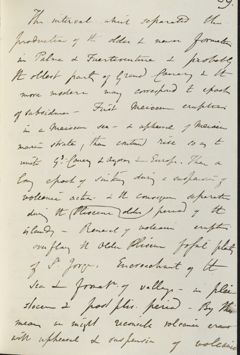 59.
The interval which separated the
production of the older & newer formations
in Palma & Fuerteventura & probably
the oldest part of Grand Canary & the
more modern may correspond to epoch
of subsidence - First Miocene eruptions
in a Miocene sea - & upheaval of Miocene
marine strata, then continued rise so as to
unite Gd. Canary & Azores & Europe. Then a
long epoch of sinking during a suspension of
volcanic action & the consequent separation
during the Pliocene (older) period of the
islands - Renewal of volcanic eruptions
Older Pliocene fossil plants
of St Jorge. Encroachment of the
sea & formation of valleys - in pleis-
tocene & post plioc. period - By this
means we might reconcile volcanic
with upheaval & suspension of volcanic